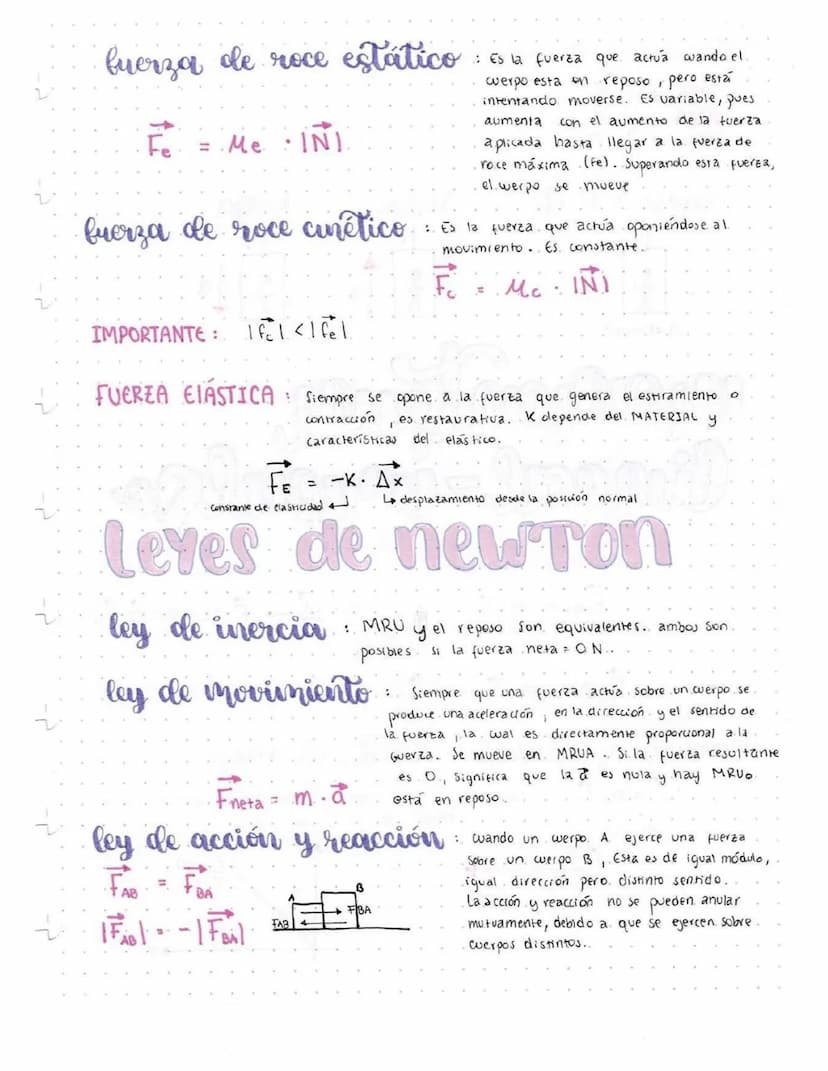 fuerza de roce estático : Es la fuerza que actúa cuando el
cuerpo esta en reposo, pero está
intentando moverse. Es variable, pues
aumenta con el aumento de la fuerza
aplicada hasta llegar a la fuerza de
roce máxima (fe). Superando esta fuerza,
el cuerpo se mueve
F⃗e = μe · |N⃗|
fuerza de roce cinético : Es la fuerza que actúa oponiéndose al
movimiento. Es constante.
F⃗c = μc · |N⃗|
IMPORTANTE: |f⃗c| < |f⃗e|
FUERZA ElÁSTICA : Siempre se opone a la fuerza que genera el estiramiento o
contracción, es restaurativa. K depende del MATERIAL y
características del elástico.
F⃗E = -K · Δ⃗x
constante de elasticidad ↵ ↳ desplazamiento desde la posición normal
leyes de newton
ley de inercia : MRU y el reposo son equivalentes. ambos son
posibles si la fuerza neta = 0 N.
ley de movimiento : Siempre que una fuerza actúa sobre un cuerpo se
produce una aceleración, en la dirección y el sentido de
la fuerza, la cual es directamente proporcional a la
fuerza. Se mueve en MRUA. Si la fuerza resultante
es 0, significa que la a⃗ es nula y hay MRU o
está en reposo.
F⃗neta = m · a⃗
ley de acción y reacción : cuando un cuerpo A ejerce una fuerza
sobre un cuerpo B, Esta es de igual módulo,
igual dirección pero distinto sentido.
La acción y reacción no se pueden anular
mutuamente, debido a que se ejercen sobre
cuerpos distintos.
F⃗AB = F⃗BA
|F⃗AB| = -|F⃗BA|
A B
FAB FBA